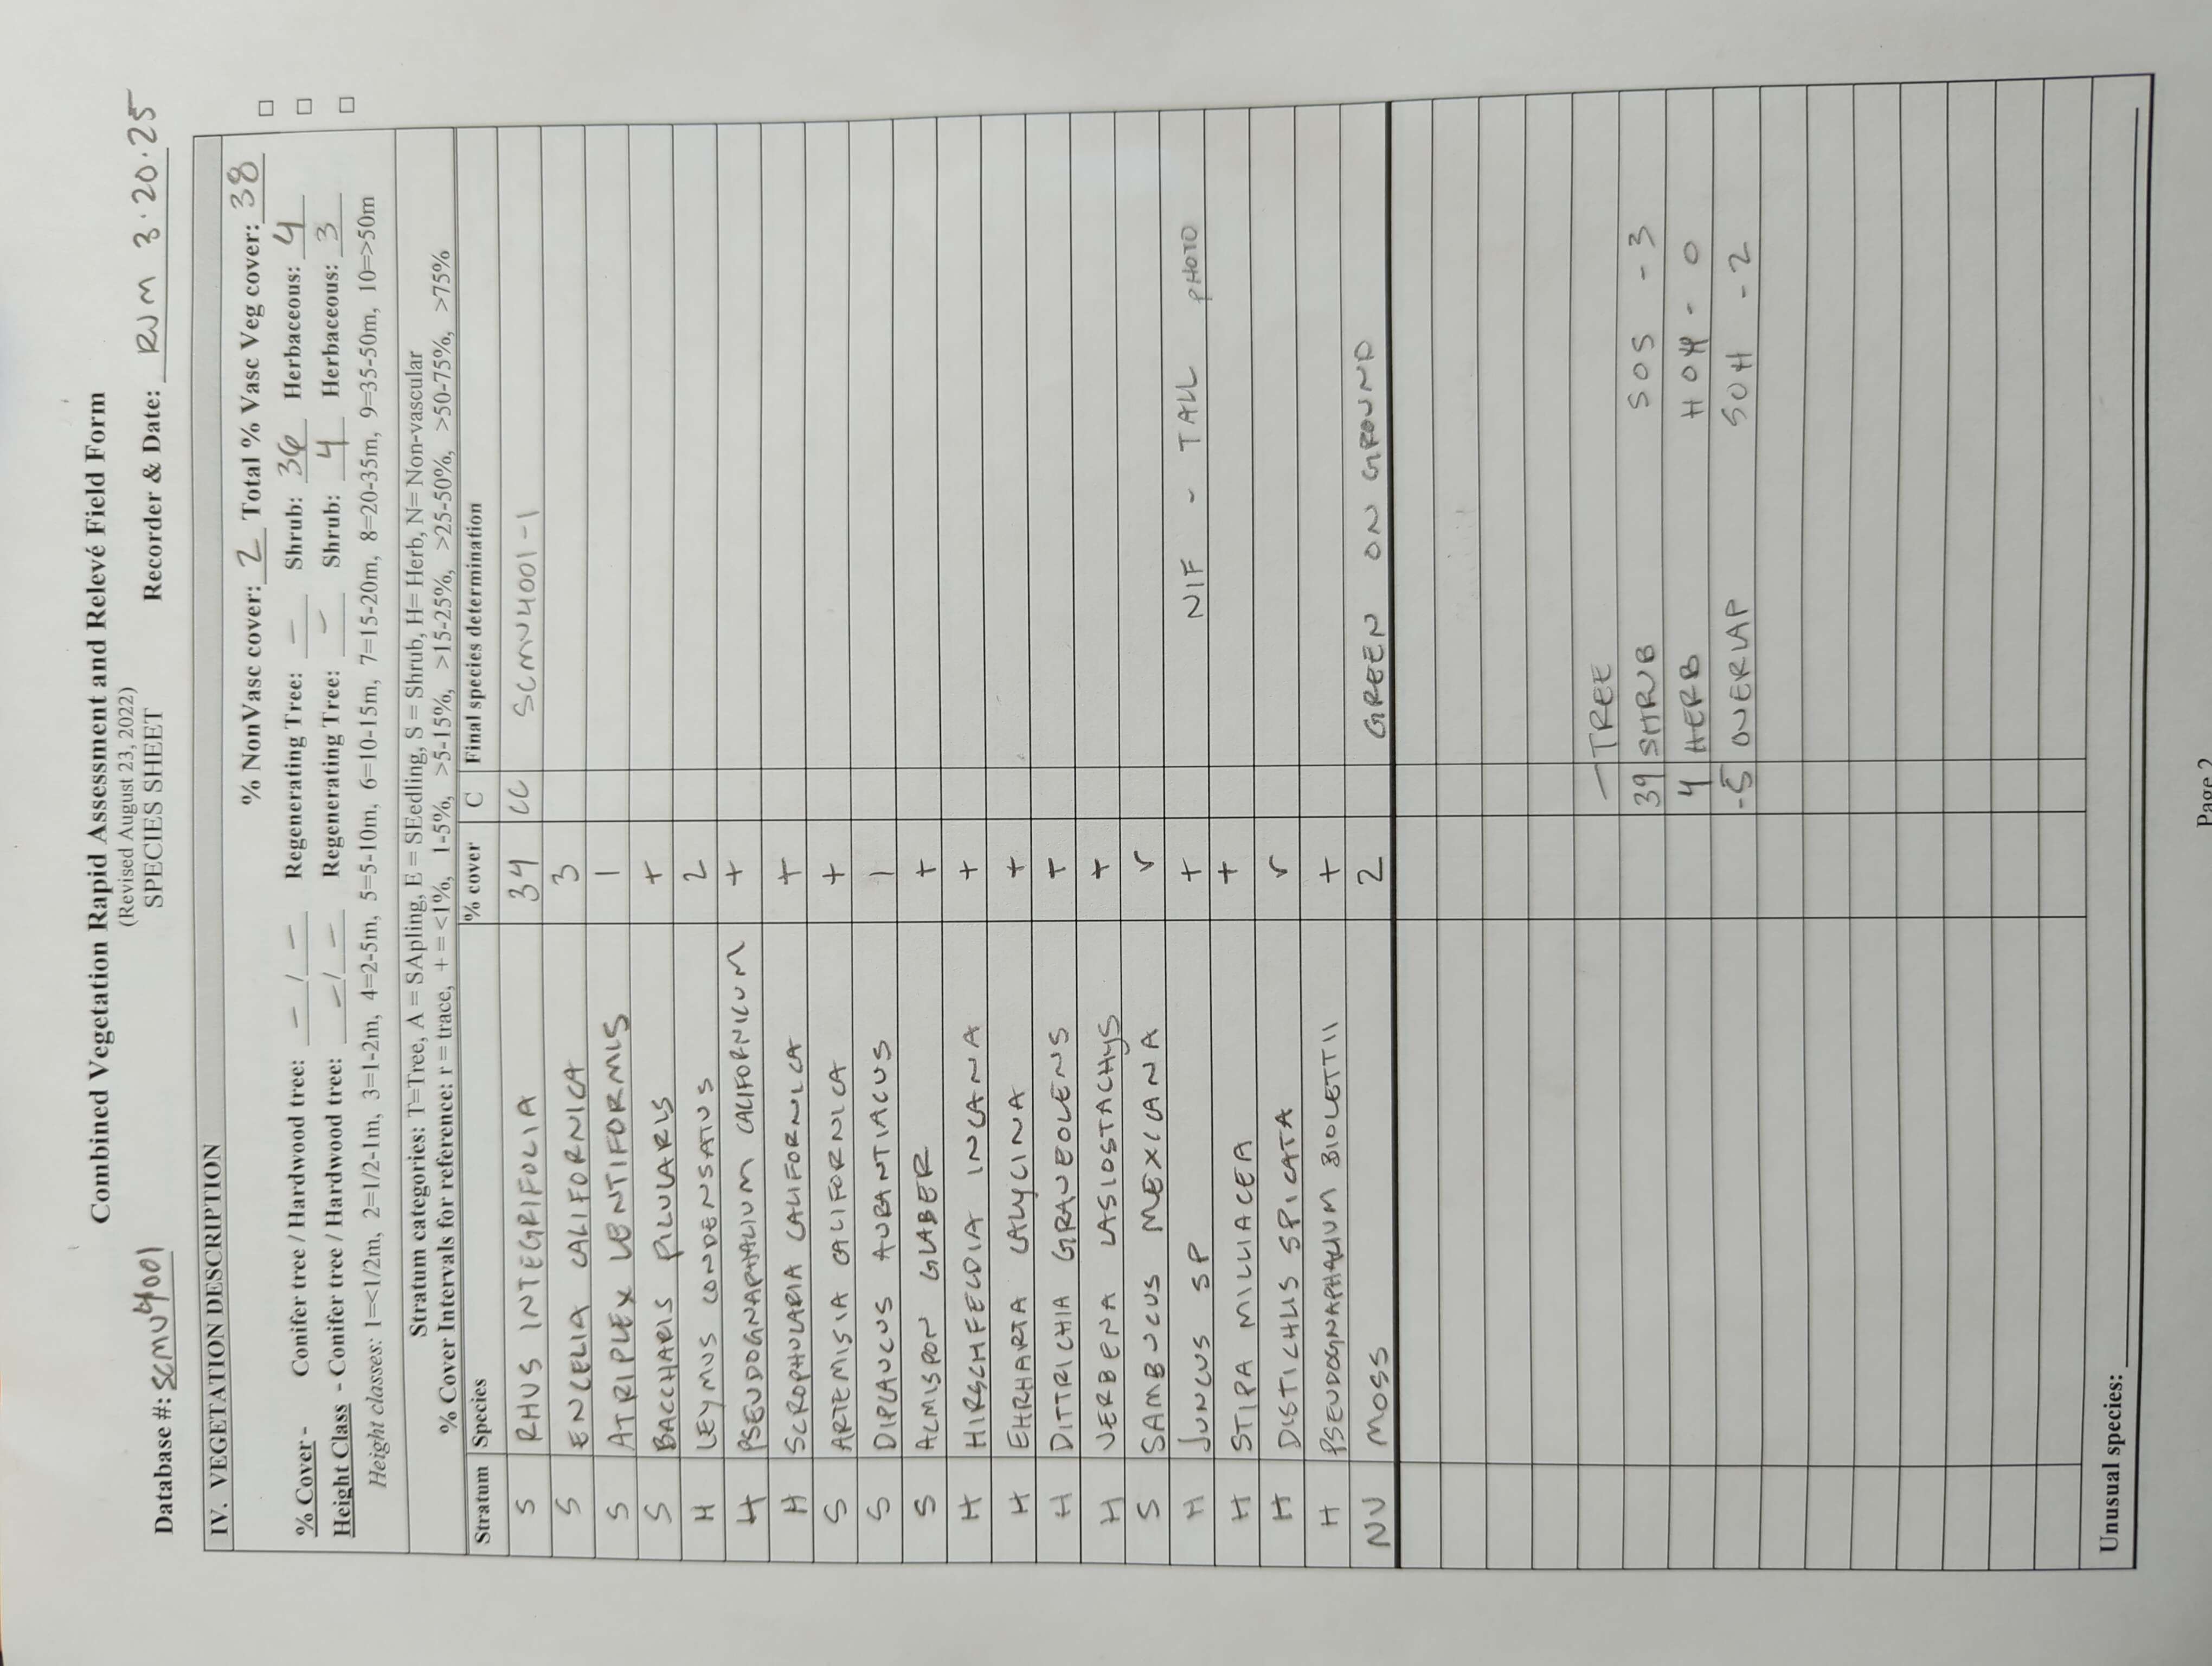 Combined Vegetation Rapid Assessment and Relevé Field Form
(Revised August 23, 2022)
SPECIES SHEET
Database #: SCMU4001 Recorder & Date: RJM 3·20·25
IV. VEGETATION DESCRIPTION
% NonVasc cover: 2 Total % Vasc Veg cover: 38 □
% Cover - Conifer tree / Hardwood tree: - / - Regenerating Tree: - Shrub: 36 Herbaceous: 4 □
Height Class - Conifer tree / Hardwood tree: - / - Regenerating Tree: - Shrub: 4 Herbaceous: 3 □
Height classes: 1=<1/2m, 2=1/2-1m, 3=1-2m, 4=2-5m, 5=5-10m, 6=10-15m, 7=15-20m, 8=20-35m, 9=35-50m, 10=>50m
Stratum categories: T=Tree, A = SApling, E = SEedling, S = Shrub, H= Herb, N= Non-vascular
% Cover Intervals for reference: r = trace, + = <1%, 1-5%, >5-15%, >15-25%, >25-50%, >50-75%, >75%
Stratum Species % cover C Final species determination
S RHUS INTEGRIFOLIA 34 CC SCMU4001-1
S ENCELIA CALIFORNICA 3
S ATRIPLEX LENTIFORMIS 1
S BACCHARIS PILULARIS +
H LEYMUS CONDENSATUS 2
H PSEUDOGNAPHALIUM CALIFORNICUM +
H SCROPHULARIA CALIFORNICA +
S ARTEMISIA CALIFORNICA +
S DIPLAUCUS AURANTIACUS 1
S ACMISPON GLABER +
H HIRSCHFELDIA INCANA +
H EHRHARTA CALYCINA +
H DITTRICHIA GRAVEOLENS +
H VERBENA LASIOSTACHYS +
S SAMBUCUS MEXICANA r
H JUNCUS SP + NIF - TALL PHOTO
H STIPA MILLIACEA +
H DISTICHLIS SPICATA r
H PSEUDOGNAPHALIUM BIOLETTII +
NV MOSS 2 GREEN ON GROUND
- TREE
39 SHRUB SOS - 3
4 HERB HOH - 0
-5 OVERLAP SOH - 2
Unusual species:
Page 2